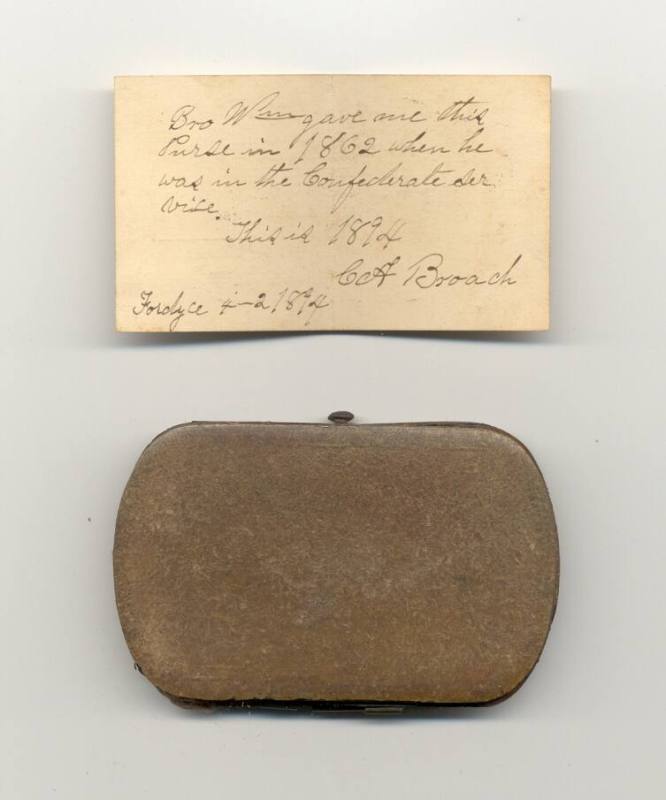 Bro Wm gave me this
Purse in 1862 when he
was in the Confederate ser
vise.
This is 1894
CA Broach
Fordyce 4-2 1894